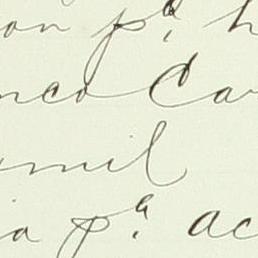 on pª. h
nco Car
mil
ia pª. ac